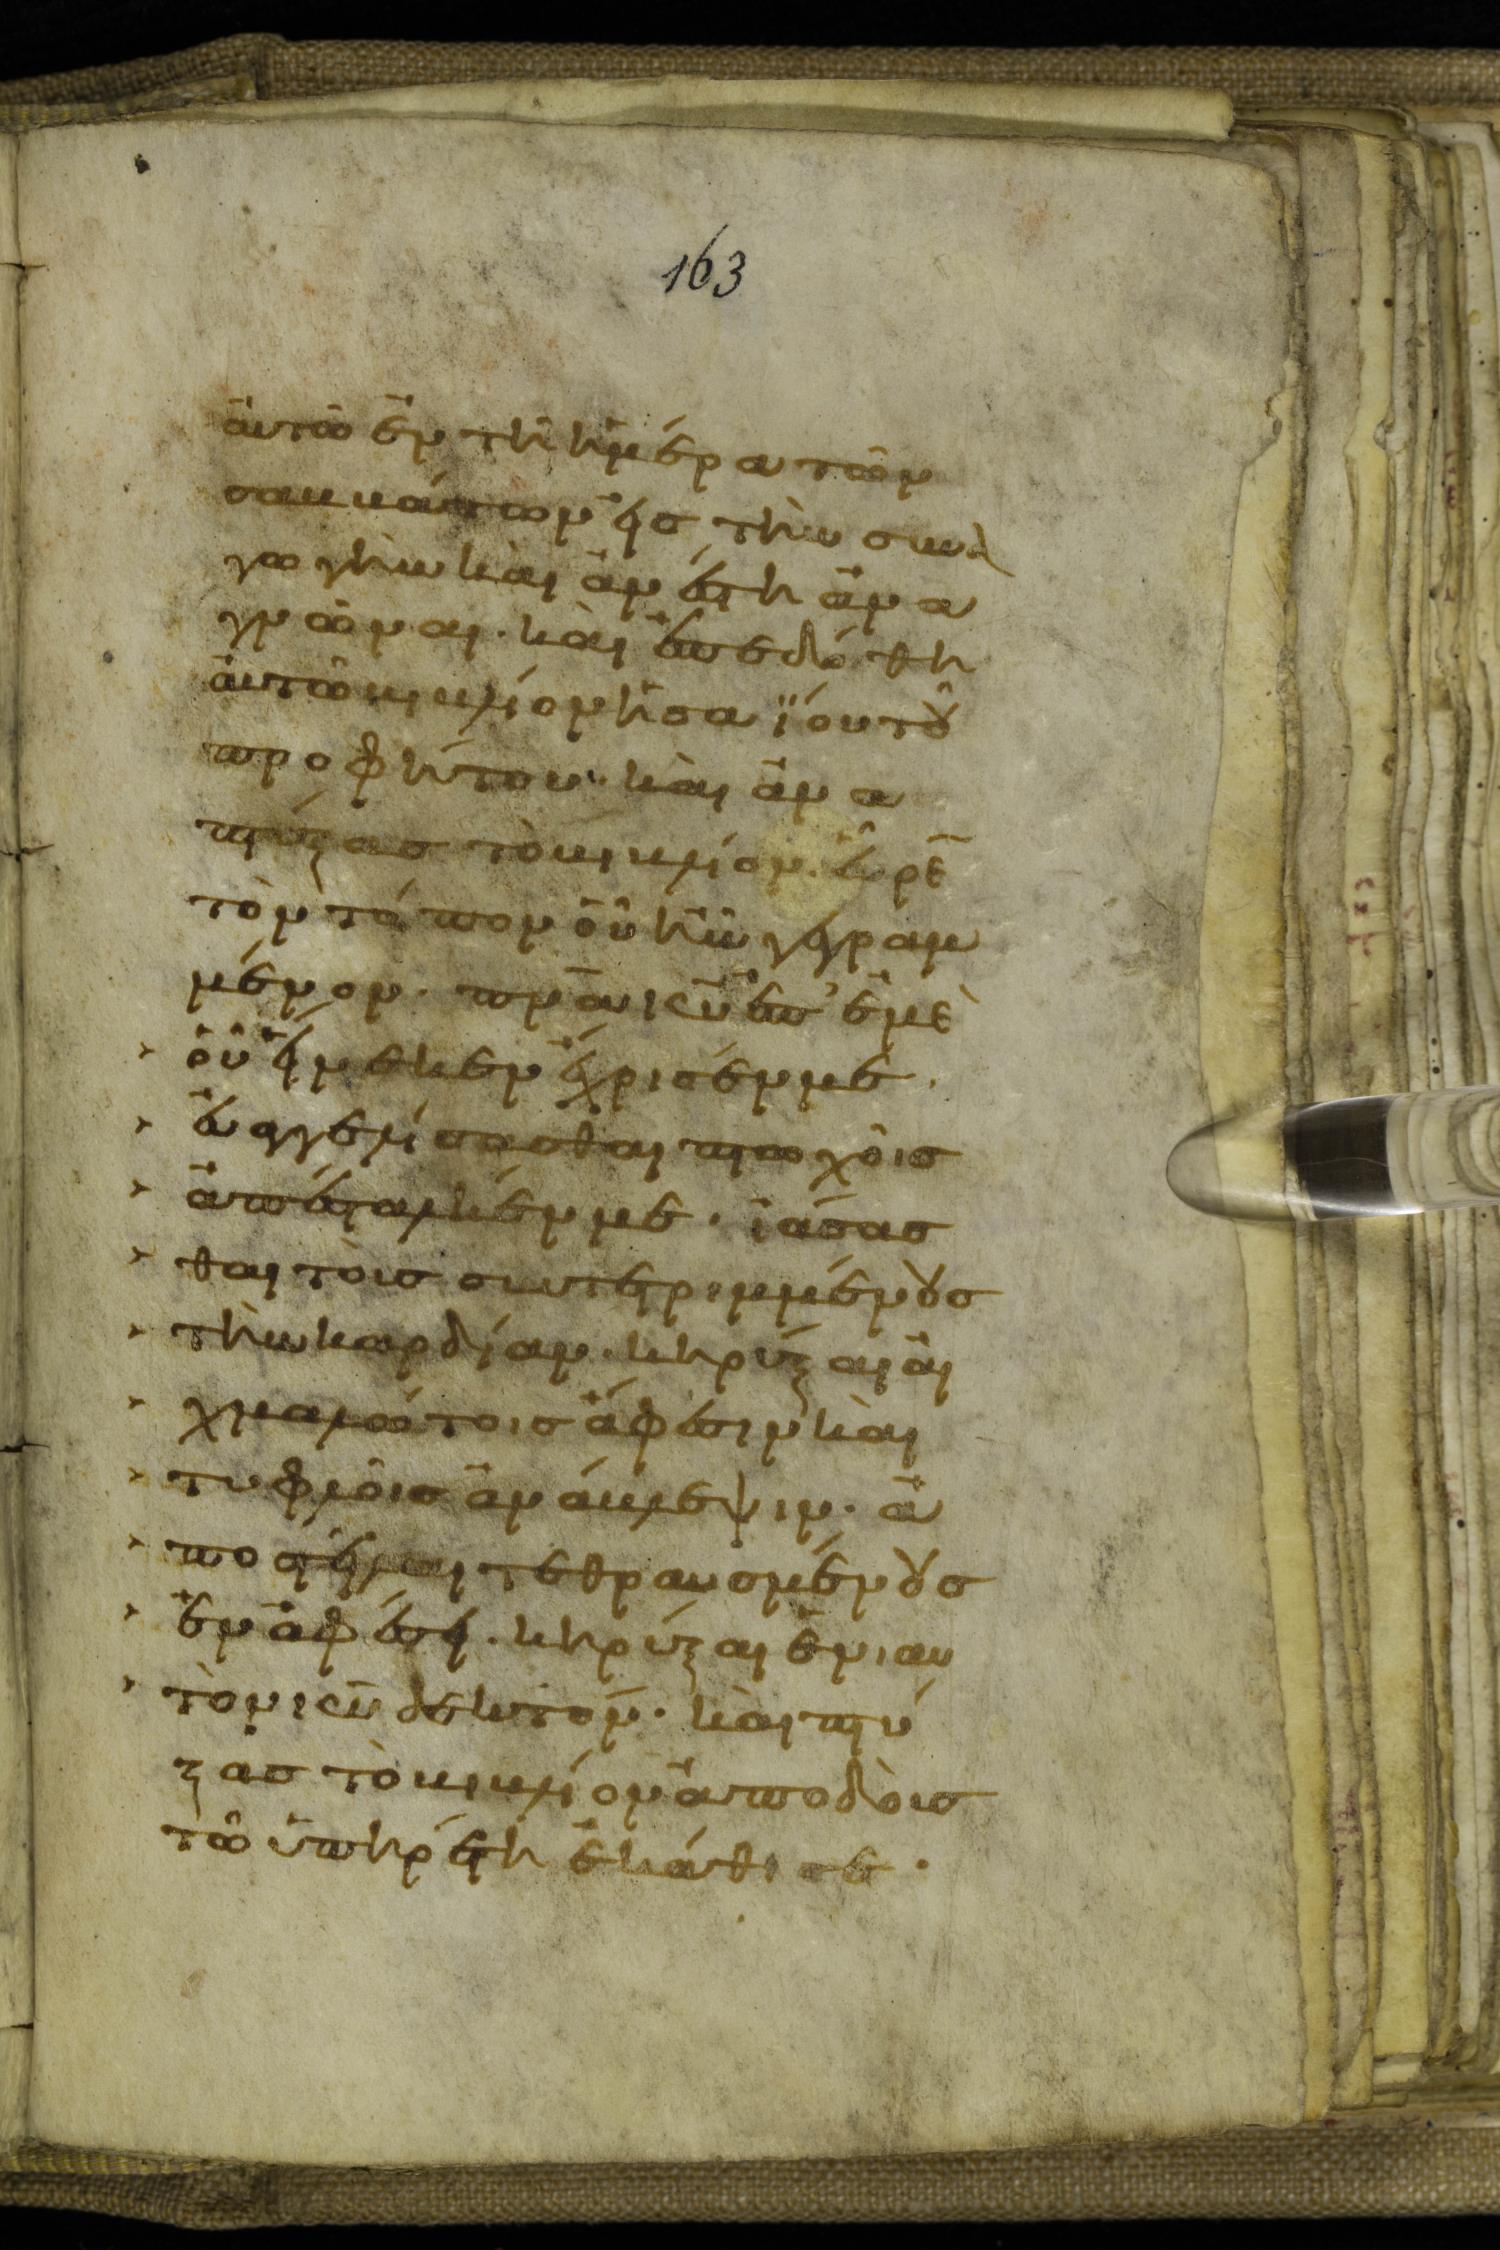 163
ἀυτῶ ἐν τῆ ἡμέρα τῶν
σαββάτων εἰς τὴν συνα
γωγὴν καὶ ἀνέστη ἀνα
γνῶναι· καὶ ἐπεδόθη
ἀυτῶ βιβλίον ἡσαΐου τοῦ
προφήτου· καὶ ἀνα
πτύξας τὸ βιβλίον· εὗρε
τὸν τόπον οὗ ἦν γεγραμ
μένον· πν̅α κ̅υ ἐπ’ ἐμὲ
οὗ εἵνεκεν ἔχρισέν με·
ἐυαγγελίσασθαι πτωχοῖς
ἀπέσταλκέν με· ἰάσασ
θαι τοὺς συντετριμμένους
τὴν καρδίαν· κηρύξαι ἀι
χμαλώτοις ἄφεσιν καὶ
τυφλοῖς ἀνάβλεψιν· ἀ
ποστεῖλαι τεθραυσμένους
ἐν ἀφέσει· κηρύξαι ἐνιαυ
τὸν κ̅υ δεκτόν· καὶ πτύ
ξας τὸ βιβλίον ἀποδοὺς
τῶ ὑπηρέτη ἐκάθισε·